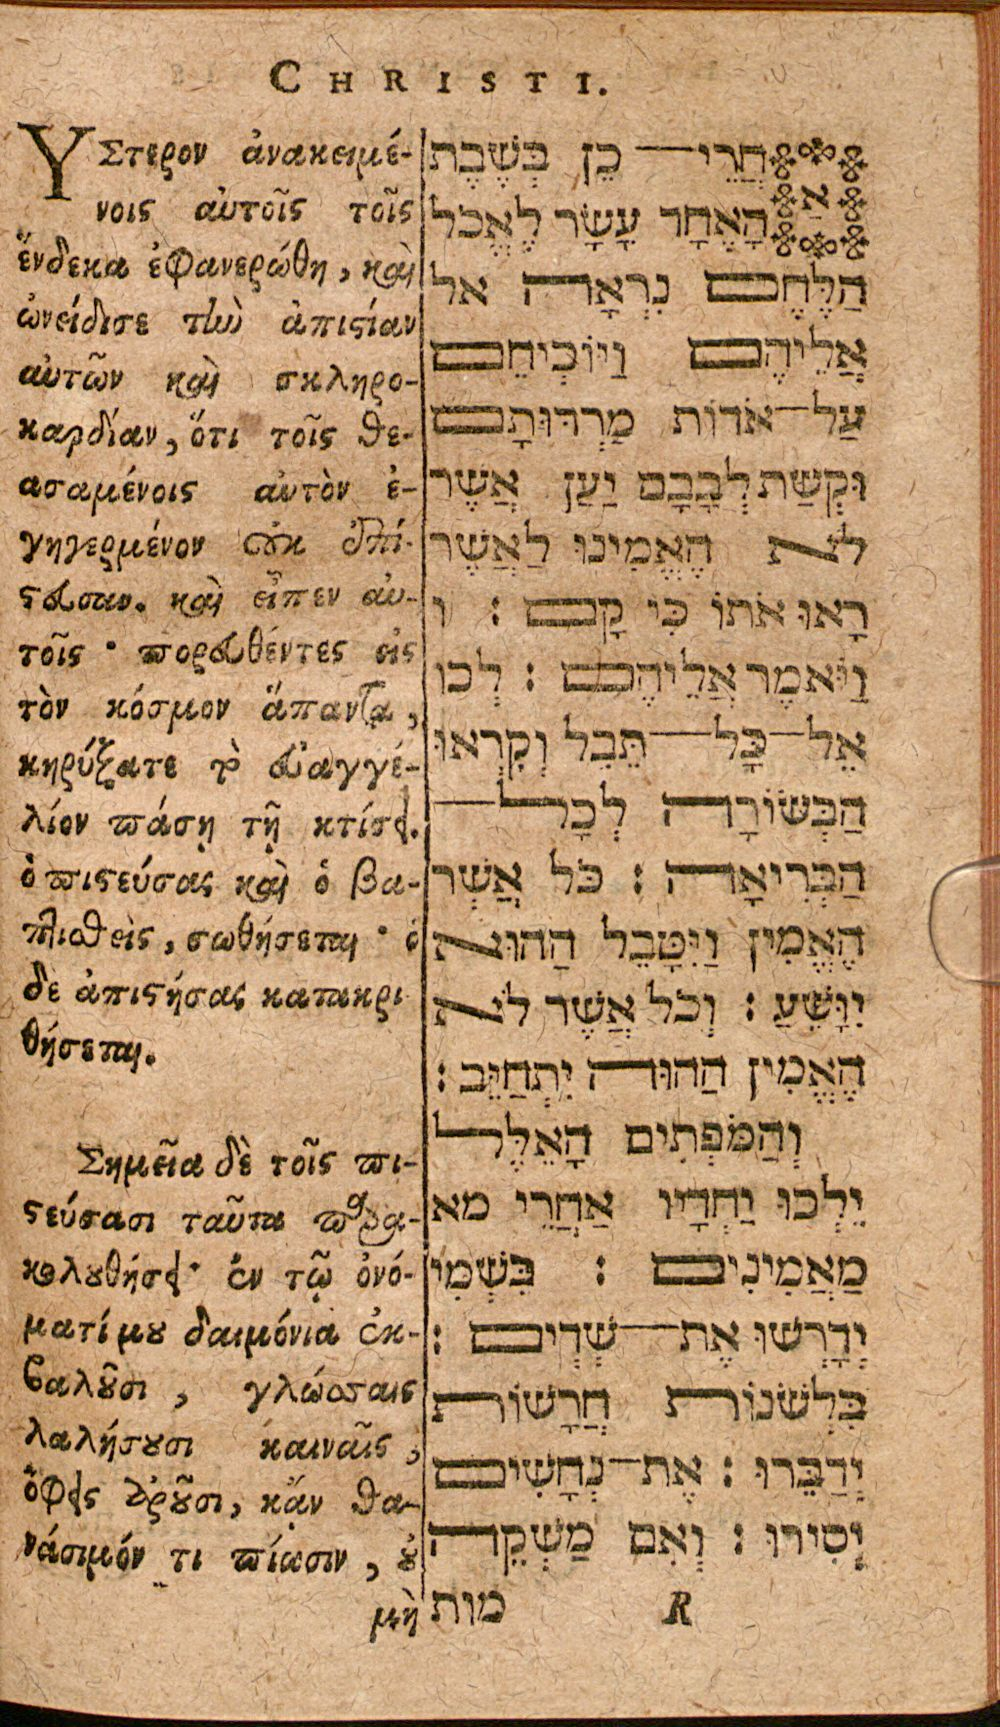 CHRISTI.
ΥΣτερον ἀνακειμέ-
νοις αὐτοῖς τοῖς
ἕνδεκα ἐφανερώθη, καὶ
ὠνείδισε τὴν ἀπιστίαν
αὐτῶν καὶ σκληρο-
καρδίαν, ὅτι τοῖς θε-
ασαμένοις αὐτὸν ἐ-
γηγερμένον οὐκ ἐπί-
στευσαν. καὶ εἶπεν αὐ-
τοῖς · πορευθέντες εἰς
τὸν κόσμον ἅπαντα,
κηρύξατε τὸ εὐαγγέ-
λιον πάσῃ τῇ κτίσει.
ὁ πιστεύσας καὶ ὁ βα-
πτισθεὶς, σωθήσεται · ὁ
δὲ ἀπιστήσας κατακρι
θήσεται.
Σημεῖα δὲ τοῖς πι-
στεύσασι ταῦτα παρα-
κολουθήσει · ἐν τῷ ὀνό-
ματί μου δαιμόνια ἐκ-
βαλοῦσι, γλώσσαις
λαλήσουσι καιναῖς,
ὄφεις ἀροῦσι, κἂν θα-
νάσιμόν τι πίωσιν, οὐ
μὴ
אַחֲרֵי־כֵן בְּשֶׁבֶת
הָאֶחָד עָשָׂר לֶאֱכֹל
הַלֶּחֶם נִרְאָה אל
אֲלֵיהֶם וַיּוֹכִיחֵם
עַל־אֹדוֹת מַרְדּוּתָם
וּקְשַׁת לְבָבָם יַעַן אֲשֶׁר
לֹא הֶאֱמִינוּ לַאֲשֶׁר
רָאוּ אֹתוֹ כִּי קָם : ו
וַיֹּאמֶר אֲלֵיהֶם : לְכוּ
אֶל־כָּל־תֵּבֵל וְקִרְאוּ
הַבְּשׂוֹרָה לְכָל־
הַבְּרִיאָה : כֹּל אֲשֶׁר
הֶאֱמִין וַיִּטָּבֵל הַהוּא
יִוָּשֵׁעַ : וְכֹל אֲשֶׁר לֹא
הֶאֱמִין הַהוּה יִתְחַיֵּב :
וְהַמֹּפְתִים הָאֵלֶּל
יֵלְכוּ יַחְדָּיו אַחֲרֵי מא
מַאֲמִינִים : בִּשְׁמִי
יְדָרְשׁוּ אֶת־שֵׁדִים :
בִּלְשֹׁנוֹת חֲרָשׁוֹת
יְדַבֵּרוּ : אֶת־נְחָשִׁים
יָסִירוּ : וְאִם מַשְׁקֵה
מות
R